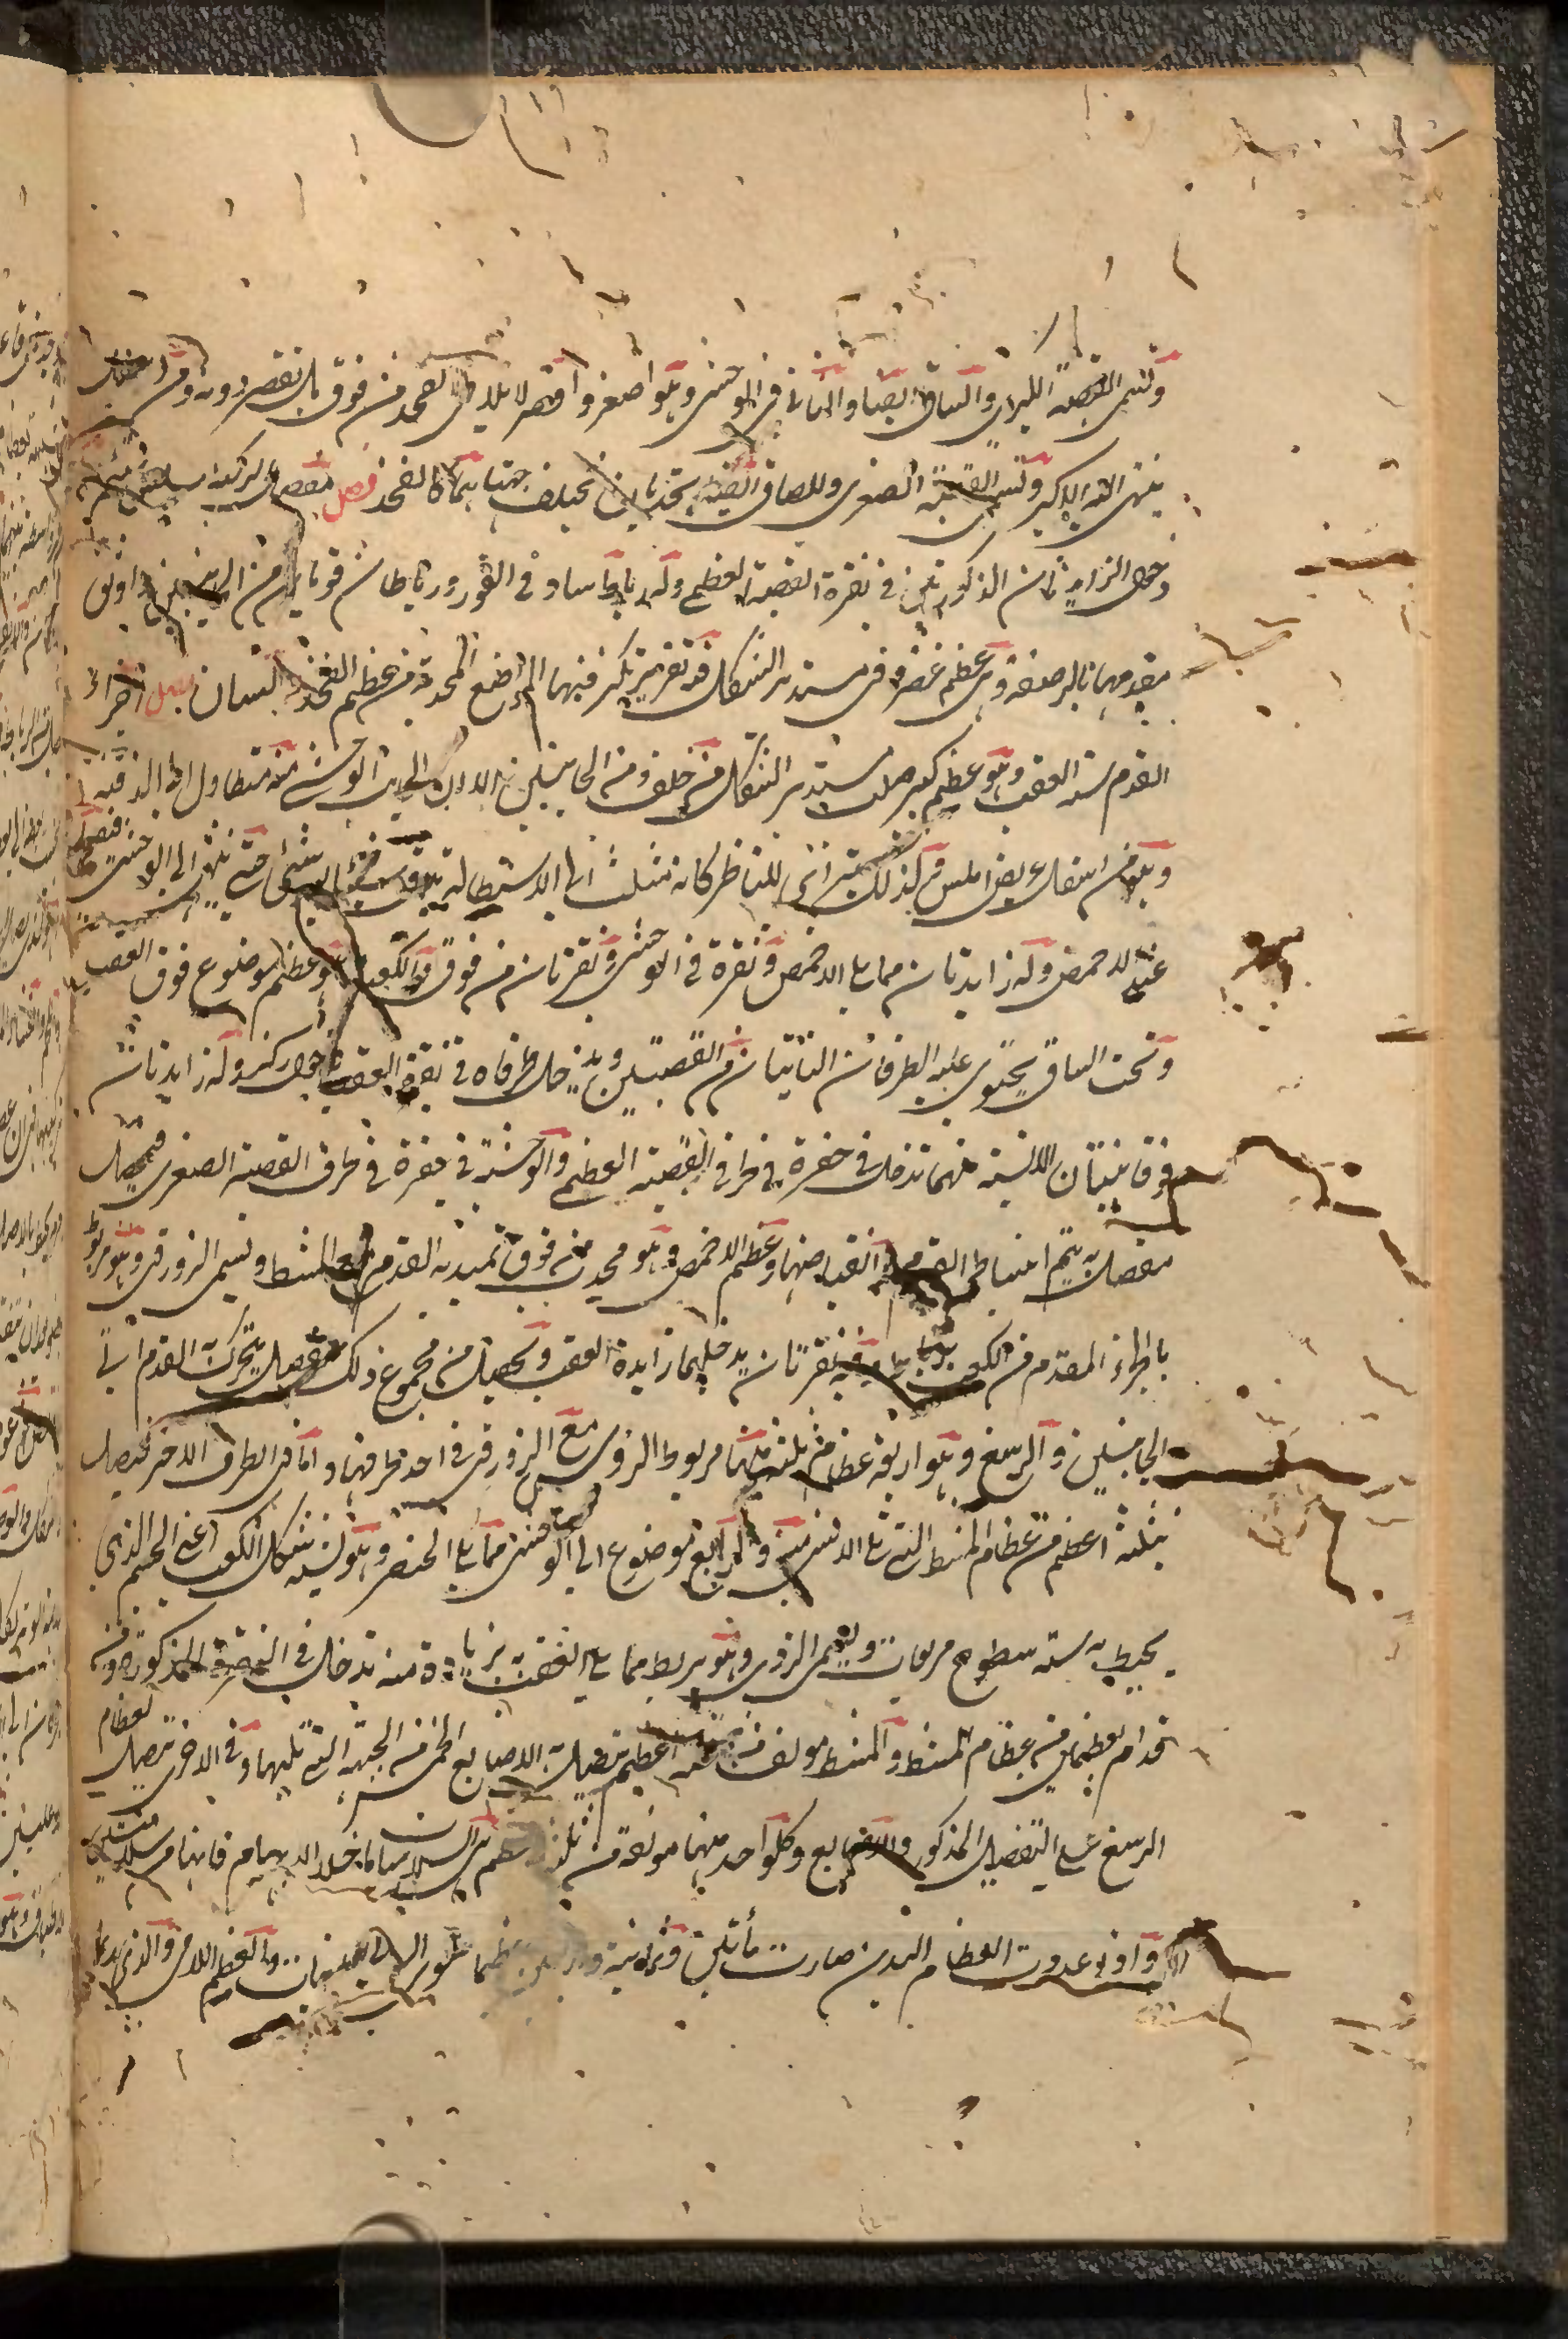 وتسمى القصبة الكبرى والساق ايضا والثانى فى الوحشى وهو اصغر واقصر لا يلاقى الفخذ من فوق بل يقصر دونه ومن اسفل
ينتهى اليه الاكبر وتسمى القصبة الصغرى وللساق ايضا تحديبان مختلف جهتاهما كالفخذ فصل مفصل الركبة
دخول الزايدتان المذكورتين فى نقرة القصبة العظمى وله رباط ساد فى الغور ورباطان قويان من الجانبين واوثق
مقدمهما بالرضفة وهى عظم غضروفى مستدير الشكل فيه نقر تتركز فيهما المواضع المحدبة من عظم الفخذ والساق فصل اجزاء
القدم ستة العقب وهو عظم كبير صلب مستدير الشكل من خلف ومن الجانبين الا ان الجانب الوحشى منه متطاول
وهو من اسفل عريض املس وكذلك للناظر كانه مثلث الى الاستطالة يدق شيئا فشيئا حتى ينتهى الى الوحشى فيضمحل
عند الاخمص وله زايدتان مما يلى الاخمص ونقرة فى الوحشى ونقرتان من فوق والكعب وهو عظم موضوع فوق العقب
وتحت الساق يحتوى عليه الطرفان الناتيان من القصبتين ويدخل طرفاه فى نقرتى العقب دخول ركز وله زايدتان
فوقانيتان الانسية منهما تدخل فى حفرة فى طرف القصبة العظمى والوحشية فى حفرة فى طرف القصبة الصغرى فيحصل
مفصل به يتم انبساط القدم وانقباضها وعظم الاخمص وهو محدب من فوق تمتد به القدم مع المشط ويسمى الزورقى وهو مربوط
باجزاء المقدم من الكعب برباط وفيه نقرتان يدخلهما زايدة العقب ويحصل من مجموع ذلك مفصل يتحرك به القدم الى
الجانبين والرسغ وهو اربعة عظام ثلثة منها مربوط الروس مع الزورقى فى احد طرفيها واما فى الطرف الاخر فيتصل
بثلثة اعظم من عظام المشط التى تلى الانسى والرابع موضوع الى الوحشى مما يلى الخنصر وهو شبيه بشكل الكعب اعنى الجسم الذى
يحيط به ستة سطوح مربعات ويسمى النردى وهو يربط مما يلى العقب بزيادة منه تدخل فى النقرة المذكورة ومن
قدام بعظمين من عظام المشط والمشط مولف من خمسة اعظم يتصل به الاصابع الخمس من الجهة التى تليها وفى الاخرى يتصل بعظام
الرسغ على التفصيل المذكور والاصابع وكل واحد منها مولفة من ثلثة اعظم هى السلاميات خلا الابهام فانها من سلاميتين
واذا عدوت العظام البدن صارت مأتين وثمانية واربعين عظما سوى السمسمانيات والعظم اللامى والذى